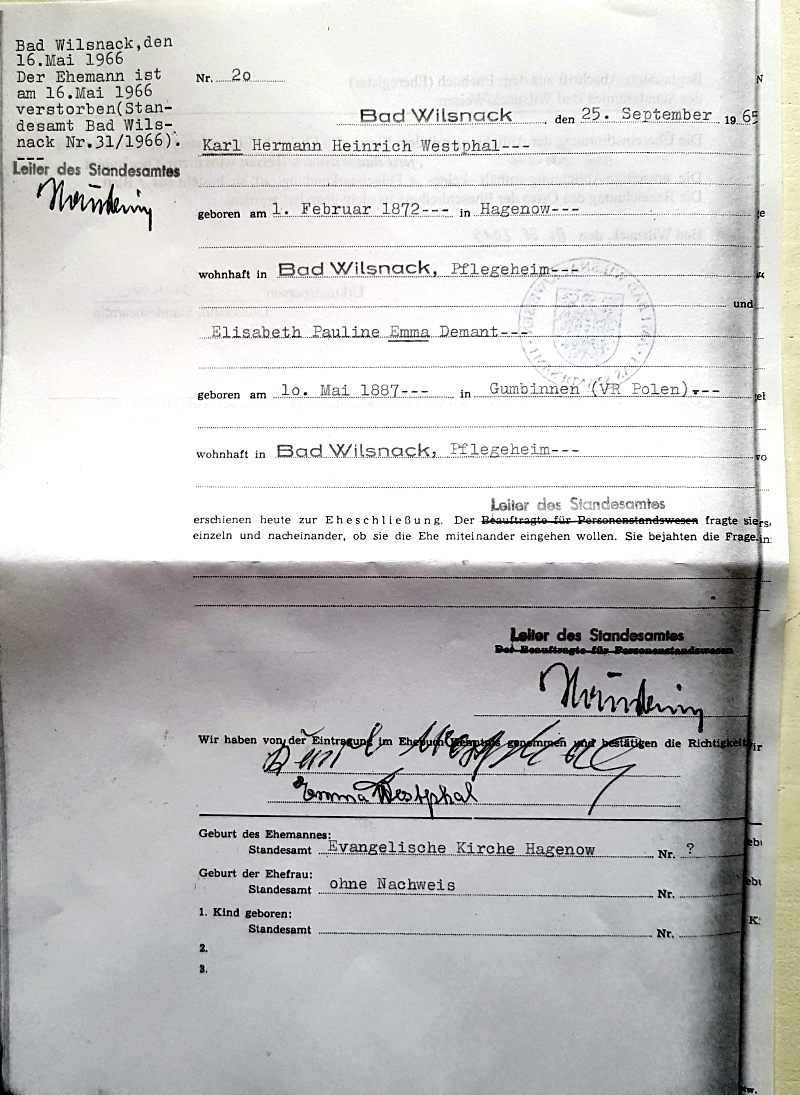 Bad Wilsnack,den
16.Mai 1966
Der Ehemann ist
am 16.Mai 1966
verstorben(Stan-
desamt Bad Wils-
nack Nr.31/1966).
---
Leiter des Standesamtes
Nr. 2o
Bad Wilsnack, den 25. September 1965
Karl Hermann Heinrich Westphal---
geboren am 1. Februar 1872--- in Hagenow---
wohnhaft in Bad Wilsnack, Pflegeheim---
und
Elisabeth Pauline Emma Demant---
geboren am 1o. Mai 1887--- in Gumbinnen (VR Polen),---
wohnhaft in Bad Wilsnack, Pflegeheim---
Leiter des Standesamtes
erschienen heute zur Eheschließung. Der Beauftragte für Personenstandswesen fragte sie
einzeln und nacheinander, ob sie die Ehe miteinander eingehen wollen. Sie bejahten die Frage.
Leiter des Standesamtes
Der Beauftragte für Personenstandswesen
Wir haben von der Eintragung im Ehebuch Kenntnis genommen und bestätigen die Richtigkeit
Karl Westphal
Emma Westphal
Geburt des Ehemannes:
Standesamt Evangelische Kirche Hagenow Nr. ?
Geburt der Ehefrau:
Standesamt ohne Nachweis Nr.
1. Kind geboren:
Standesamt Nr.
2.
3.